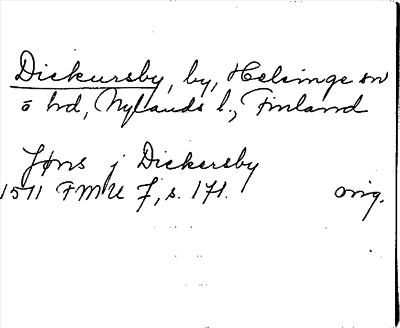 Dickursby, by, Helsinge sn
ö hd, Nylands l., Finland
Jøns j Dickersby
1511 FMU 7, s. 171. orig.